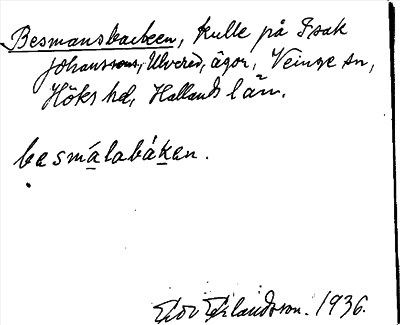 Besmansbacken, kulle på Isak
Johanssons, Ulvered, ägor, Veinge sn,
Höks hd, Hallands län.
besmálabákan.
1936.